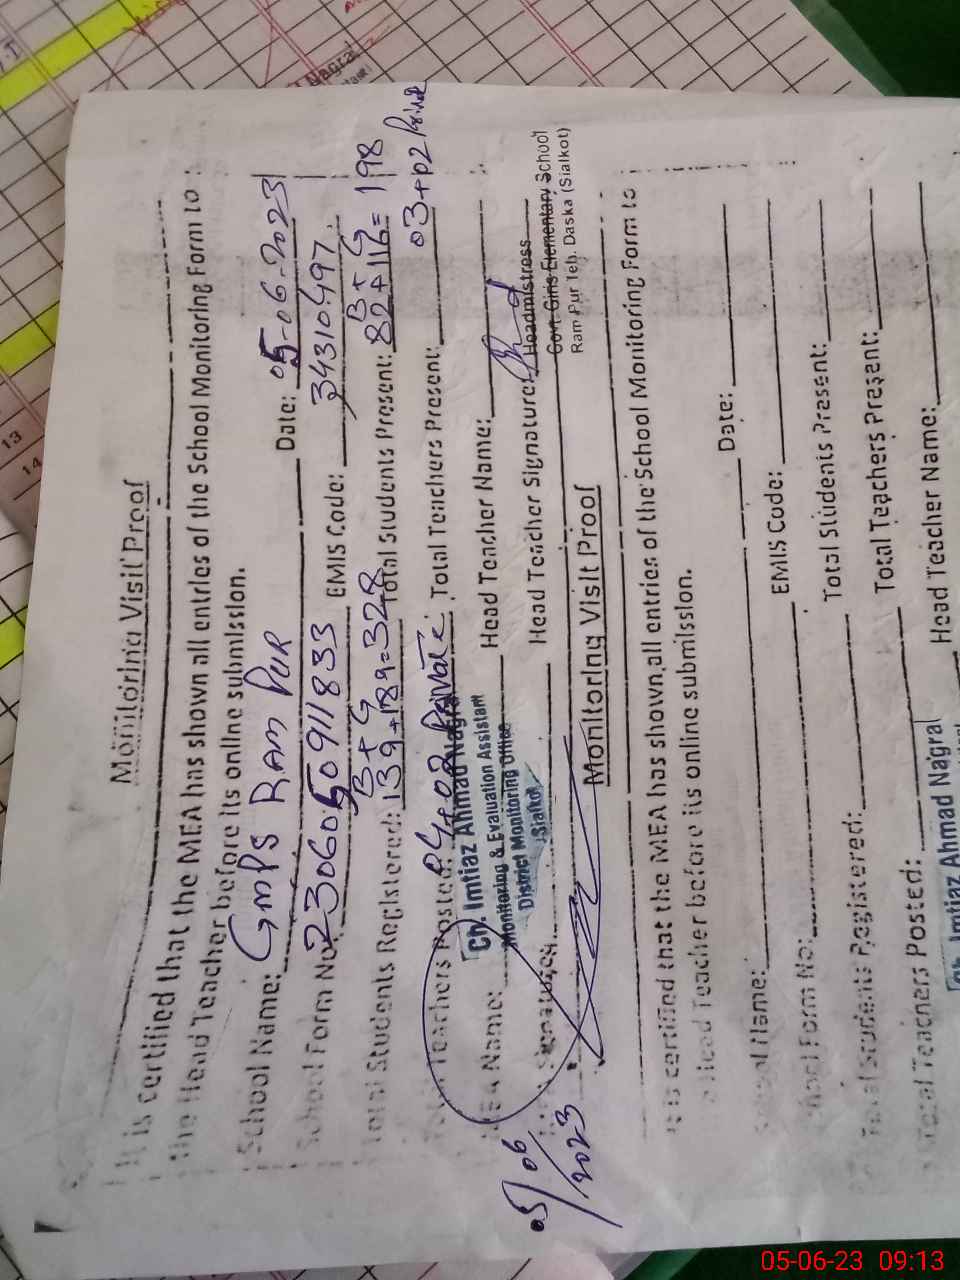 Monitoring Visit Proof
It is certified that the MEA has shown all entries of the School Monitoring Form to
the Head Teacher before its online submission.
School Name: GMPS RAM PUR Date: 05-06-2023
School Form No: EMIS Code: 34310497
B + G B + G
Total Students Registered: 139+189=328 Total Students Present: 82+116=198
Total Teachers Posted: 04+02 Private Total Teachers Present: 03+02
MEA Name: Ch. Imtiaz Ahmad Nagra Head Teacher Name:
Monitoring & Evaluation Assistant
District Monitoring Office
Sialkot
Signature: Head Teacher Signature:
Headmistress
Govt. Girls Elementary School
Ram Pur Teh. Daska (Sialkot)
05/06/2023
Monitoring Visit Proof
It is certified that the MEA has shown all entries of the School Monitoring Form to
Head Teacher before its online submission.
School Name: Date:
School Form No: EMIS Code:
Total Students Registered: Total Students Present:
Total Teachers Posted: Total Teachers Present:
Ch. Imtiaz Ahmad Nagra Head Teacher Name:
Nagra
13
14
05-06-23 09:13